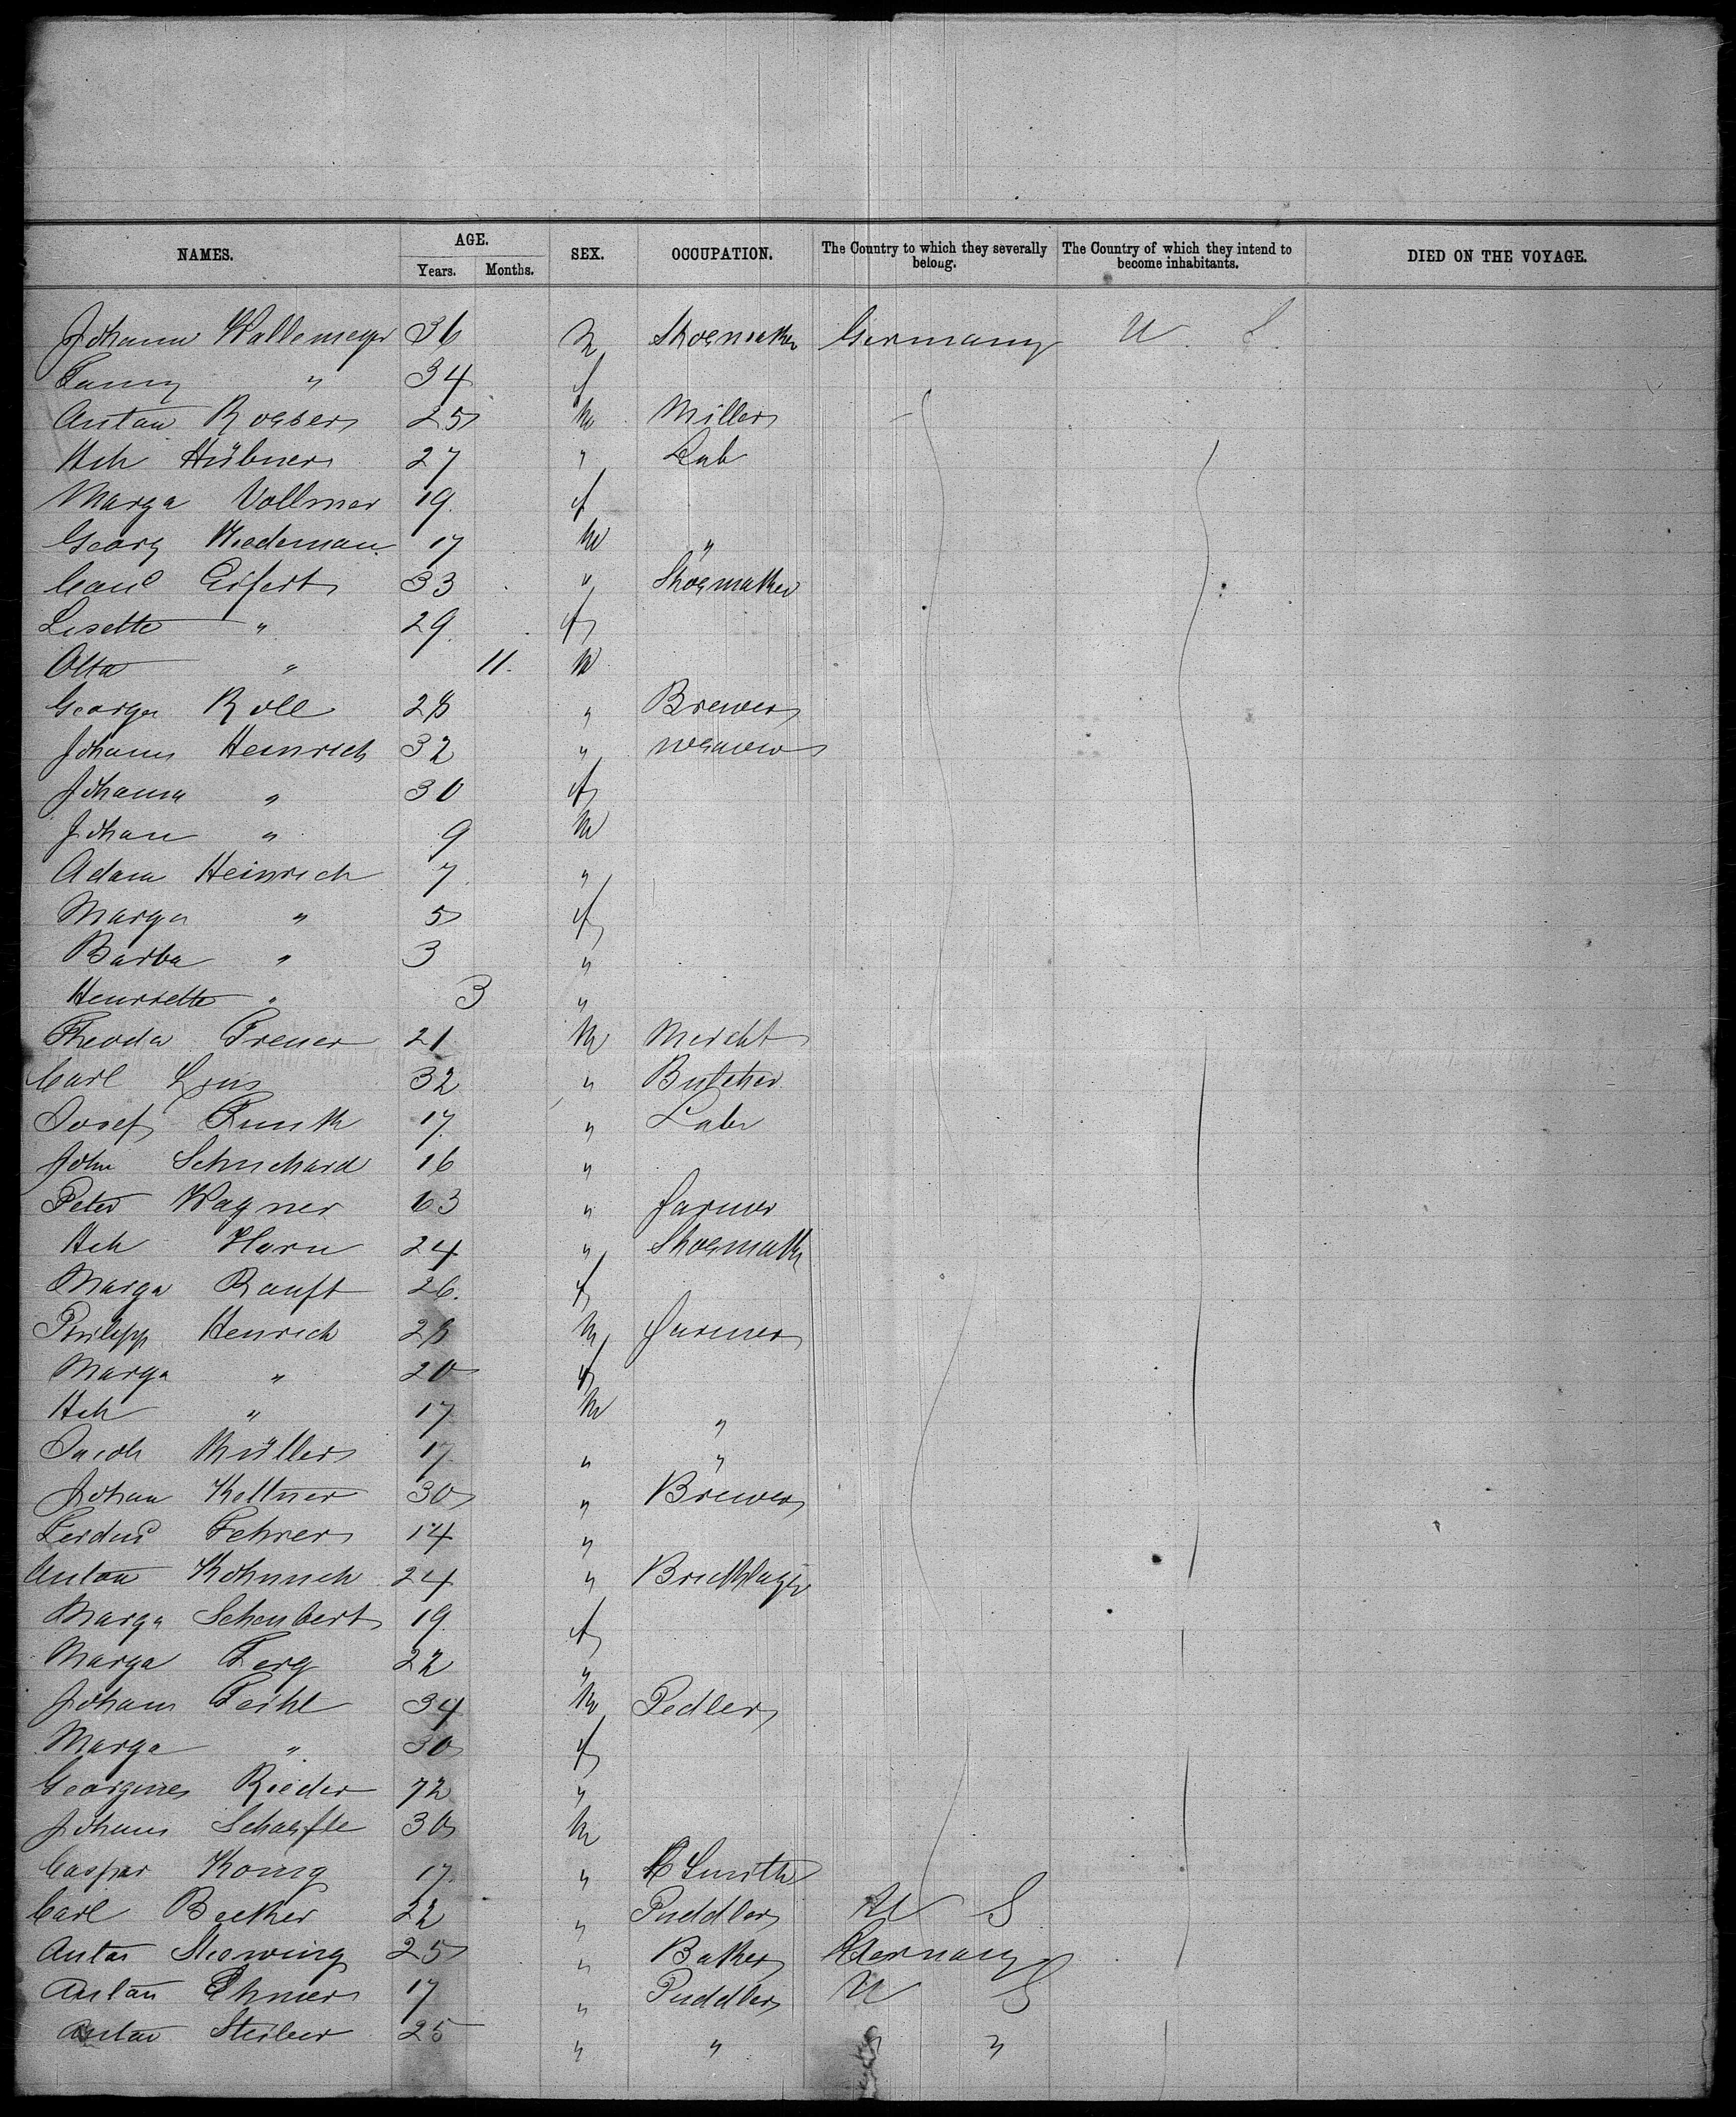 NAMES. AGE. SEX. OCCUPATION. The Country to which they severally belong. The Country of which they intend to become inhabitants. DIED ON THE VOYAGE.
Years. Months.
Johann Wallemeyer 36 m Shoemaker Germany U. S.
Fanny " 34 f
Anton Roeber 25 m Miller
Hch Hübner 27 " Lab
Marga Vollmer 19. f
Georg Wiedeman 17 m "
Carl Eifert 33 " Shoemaker
Lisette " 29. f
Otto " 11. m
George Roll 28 " Brewer
Johann Heinrich 32 " weaver
Johanna " 30 f
Johan " 9 m
Adam Heinrich 7 "
Marga " 5 f
Barba " 3 "
Henriette " 3 "
Theodor Treuer 21 m Mercht
Carl 32 " Butcher
Josef Funk 17. " Labr
John Schuchard 16 "
Peter Wagner 63 " farmer
Hch Horn 24 " Shoemaker
Marga Ranft 26. f
Philipp Henrich 28 m farmer
Marga " 20 f
Hch " 17 m "
Jacob Müller 17 " "
Johan Kellner 30 " Brewer
Ferdnd Fehrer 14 "
Anton 24 " Bricklayer
Marga Schubert 19. f
Marga Ferg 22 "
Johann Feihl 34 m Pedler
Marga " 30 f
Rieder 72 "
Johann Schaefle 30 m
Caspar Konig 17 " Smith
Carl Becker 22 " Puddler U S
Anton 25 " Baker Germany
Anton Ehmer 17 " Puddler U S
Anton Steiber 25 " " " "